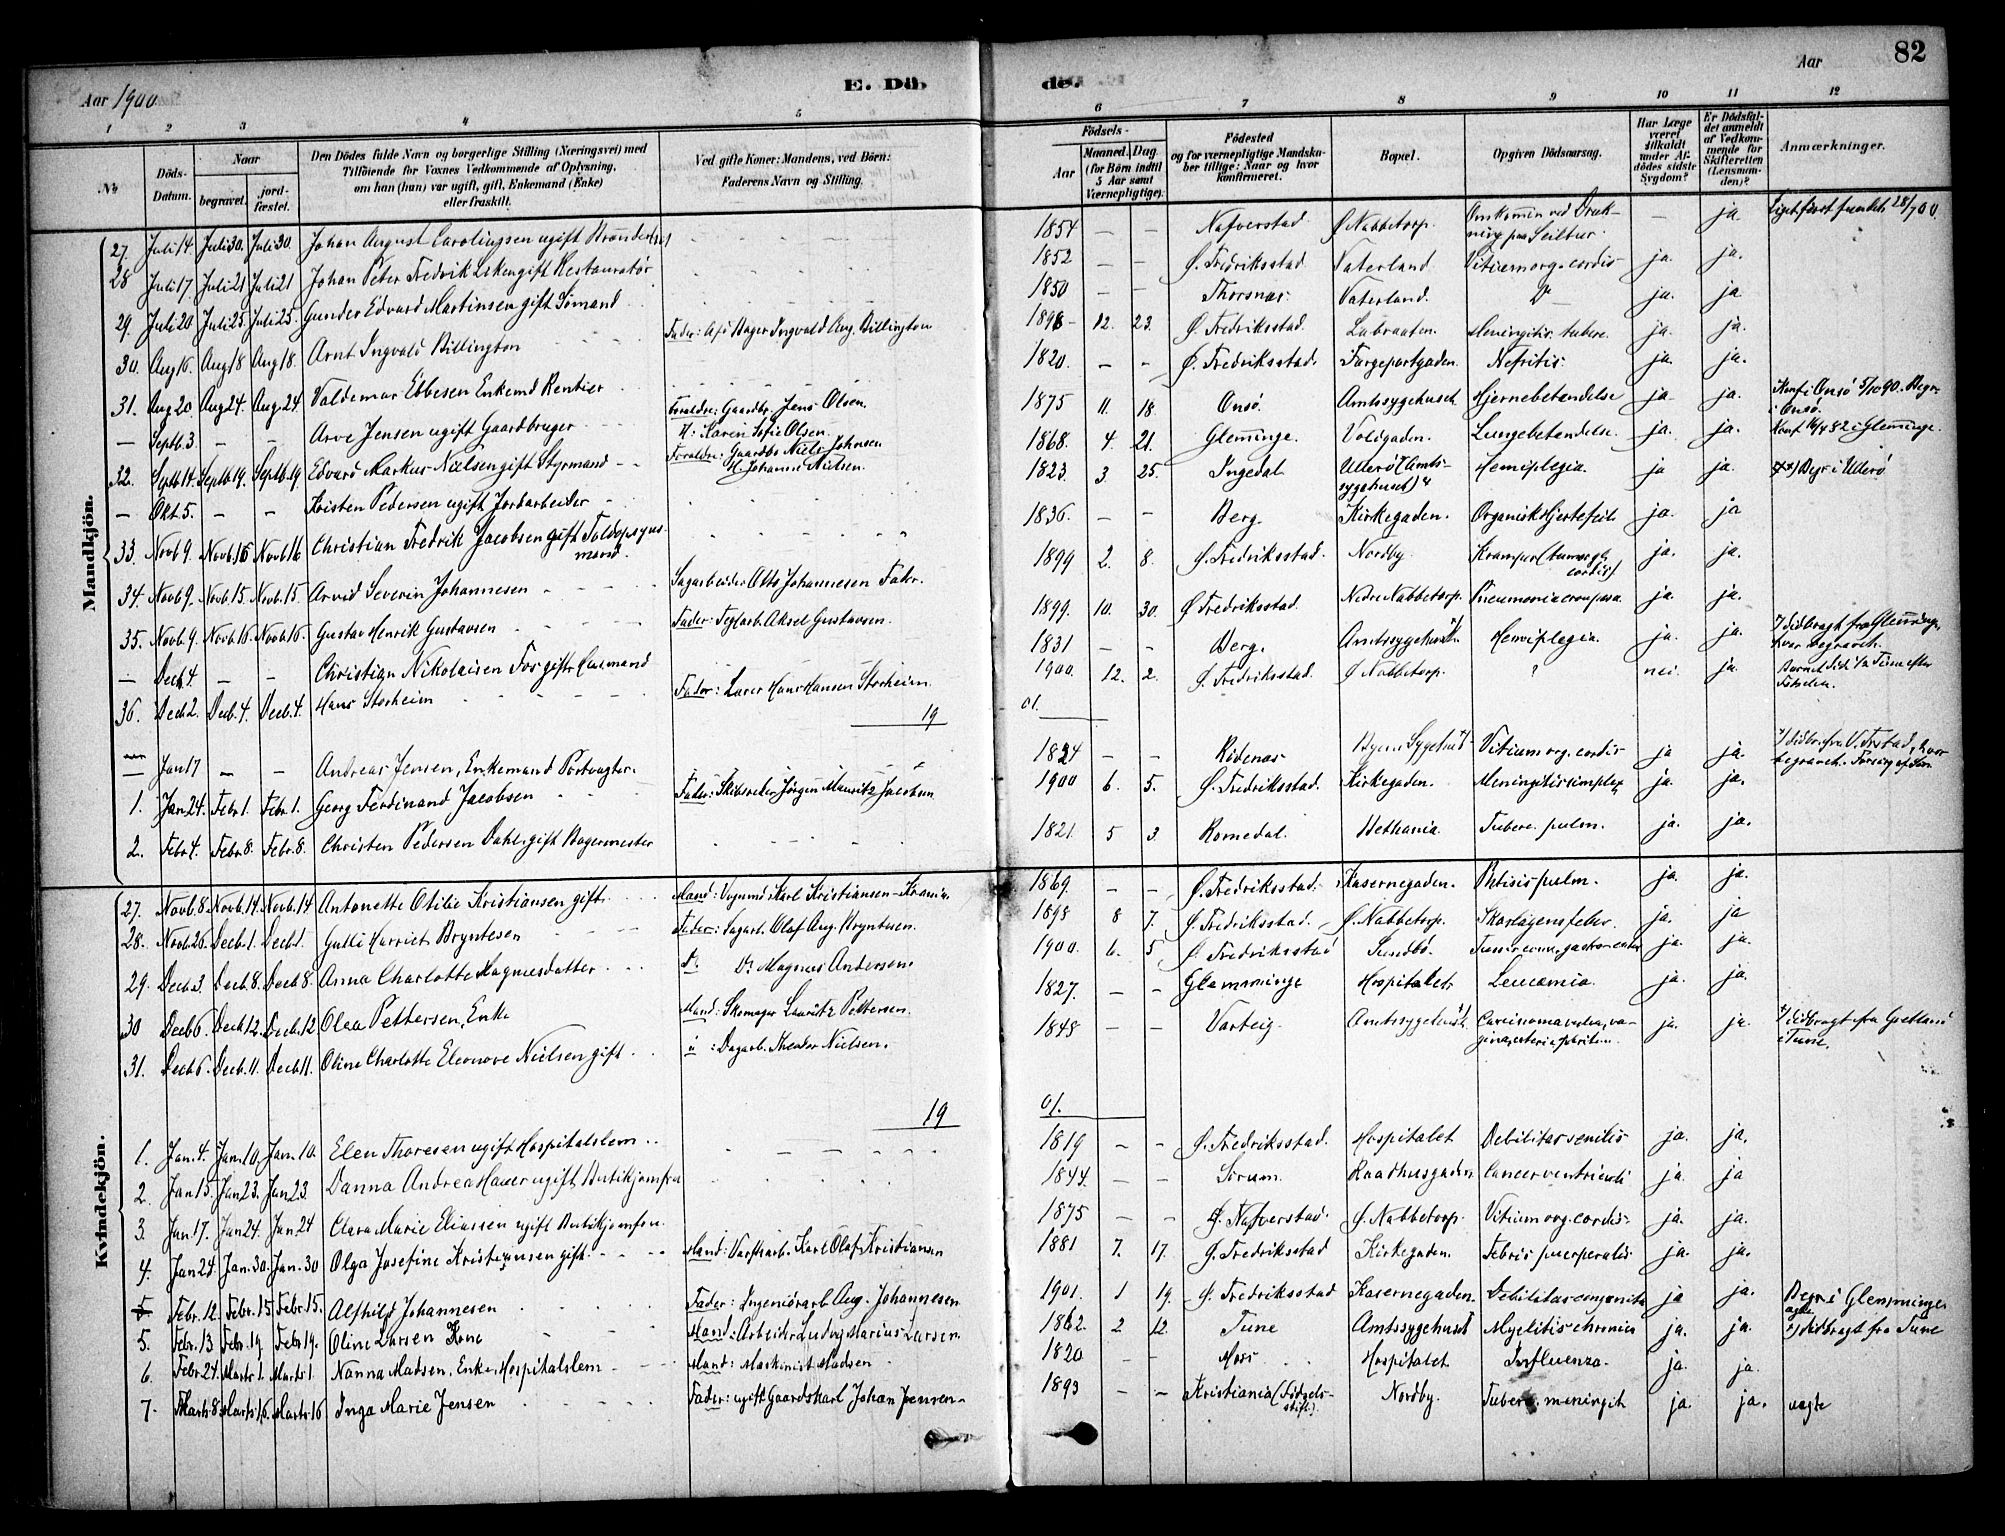 82
Aar 1900
E. Dö
de.
Aar
1 2 3 4 5 6 7 8 9 10 11 12
No
Döds-Datum.
Naar
begravet.
jord-fæstet.
Den Dödes fulde Navn og borgerlige Stilling (Næringsvei) med Tilföiende for Voxnes Vedkommende af Oplysning, om han (hun) var ugift, gift, Enkemand (Enke) eller fraskilt.
Ved gifte Koner: Mandens, ved Börn: Faderens Navn og Stilling.
Födsels-
Aar
Maaned. Dag
(for Börn indtil 5 Aar samt Værnepligtige).
Födested og for værnepligtige Mandskaber tillige: Naar og hvor konfirmeret.
Bopæl.
Opgiven Dödsaarsag.
Har Læge været tilkaldt under Afdödes sidste Sygdom?
Er Dödsfaldet anmeldt af Vedkommende for Skifteretten (Lensmanden)?
Anmærkninger.
Mandkjön.
27. Juli 14. Juli 30. Juli 30. Johan August Carolinssen ugift 1854 — — Nafverstad Ø. Nabbetorp. Omkommen ved Drukning paa Seiltur. — ja 28/7 00.
28 Juli 17 Juli 21 Juli 21 Johan Peter Fredrik gift Restauratør 1852 — — Ø. Fredriksstad Vaterland. Vitium org. cordis ja. ja.
29. Juli 20 Juli 25. Juli 25. Gunder Edvard Martinsen gift Sømand 1850 — — Thorsnæs. Vaterland. D° ja. ja
30. Aug 16 Aug 18 Aug 18. Arnt Ingvald Billington Fader: Bager Ingvald Aug. Billington 12. 23. Ø. Fredriksstad. Labraaten. Meningitis tuberc. ja. ja.
31. Aug 20. Aug 24. Aug. 24 Valdemar Ebbesen Enkemd Rentier 1820. — — Ø. Fredriksstad. Færgeportgaden. Nefritis. ja. ja.
— Septb. 3 — — Arve Jensen ugift Gaardbruger Foreldre: Gaardbr. Jens Olsen. H: Karen Sofie Olsen. 1875 11. 18. Onsø. Amtssygehuset Hjernebetændelse ja. ja Konf. i Onsø 5/10 90. Begr. i Onsø.
32. Septb 14. Septb 19. Septb. 19 Edvard Markus Nielsen gift Styrmand Foreldre: Gaardbr Niels Johnsen H. Johanne Nielsen. 1868. 4. 21. Glemminge. Voldgaden. Lungebetændelse. ja. ja. Konf 16/4 82 i Glemminge.
— Okt. 5. — — Kristen Pedersen ugift Jordarbeider 1823 3. 25. Ingedal Ullerø (Amtssygehuset) Hemiplegia. ja ja. Begr. i Ullerø
33. Novb 9. Novb. 16 Novb 16 Christian Fredrik Jacobsen gift Toldopsynsmand. 1836. — — Berg. Kirkegaden. Organisk Hjertefeil ja. ja
34. Novb 9. Novb. 15. Novb. 15. Arvid Severin Johannesen Sagarbeider Otto Johannesen Fader. 1899 2. 8. Ø. Fredriksstad. Nordby. Kramper (cordis) ja. ja.
35. Novb. 9. Novb. 16. Novb 16. Gustav Henrik Gustavsen Fader: Teglarb. Aksel Gustavsen. 1899. 10. 30. Ø Fredriksstad. Nedre Nabbetorp. Pneumonia crouposa ja. ja.
— Decb 4 — — Christian Nikolaisen Fos gift Husmand 1831 — — Berg. Amtssygehuset Hemiplegia. ja. ja. hidbragt fra Glemminge, hvor begravet.
36. Decb 2. Decb. 4. Decb. 4. Hans Storheim Fader: Lærer Hans Hansen Storheim. 1900. 12. 2. Ø. Fredriksstad. Ø Nabbetorp. ? nei. ja. Barnet død 1/2 Time efter Fødselen.
19 01.
— Jan 17 — — Andreas Jensen, Enkemand Portvagter. 1824 — — Rødenæs Byens Sygehus Vitium org. cordis ja ja.
1. Jan. 24. Febr. 1. Febr. 1. Georg Ferdinand Jacobsen Fader: Skibsreder Jörgen Mauritz Jacobsen 1900 6. 5. Ø. Fredriksstad. Kirkegaden. Meningitis simplex ja. ja.
2. Febr 4. Febr. 8. Febr. 8. Christen Pedersen Dahl. gift Bagermester 1821. 5 3. Romedal. Bethania Tuberc. pulm. ja. ja.
Kvindekjön.
27. Novb. 8. Novb. 14. Novb. 14 Antonette Otilie Kristiansen gift. Mand: Vognmd Karl Kristiansen 1869. — — Ø. Fredriksstad. Kasernegaden. Phtisis pulm. ja. ja.
28. Novb. 26. Decb. 1. Decb 1. Gulli Harriet Bryntesen Fader: Sagarb. Olaf Aug. Bryntesen. 8 7. Ø. Fredriksstad. Ø. Nabbetorp. Skarlagensfeber. ja. ja
29. Decb 3. Decb. 8. Decb 8. Anna Charlotte Magnusdatter D° D° Magnus Andersen. 1900. 6. 5 Ø Fredriksstad Sundbø. ja. ja.
30 Decb 6. Decb 12. Decb. 12 Olea Pettersen, Enke Mand: Skomager Lauritz Pettersen. 1827. — — Glemminge Hospitalet Leucæmia. ja. ja.
31. Decb 6. Decb. 11. Decb. 11. Oline Charlotte Eleonore Nielsen gift. " : Dagarb. Theodor Nielsen. 1848 — — Varteig. Amtssygehuset. Carcinoma ja. ja. hidbragt fra Gretland i Tune.
19 01.
1. Jan. 4. Jan. 10. Jan. 10. Elen Thoresen ugift Hospitalslem 1819 — — Ø. Fredriksstad. Hospitalet Debilitas senilis ja. ja.
2. Jan 15. Jan 23. Jan 23. Danna Andrea Hauer ugift Butikjomfru 1844. — — Sörum. Raadhusgaden Cancer ventriculi ja. ja
3. Jan. 17. Jan 24. Jan. 24 Clara Marie Eliassen ugift Butikjomfru. 1875 — — Nafverstad. Ø. Nabbetorp. Vitium org. cordis. ja. ja.
4. Jan 24. Jan. 30. Jan. 30 Olga Josefine Kristiansen gift. Mand: Værftsarb. Karl Olaf Kristiansen 1881 7. 17. Ø. Fredriksstad Kirkegaden. Febris puerperalis ja. ja.
5 Febr. 12. Febr. 15. Febr. 15. Alfhild Johannesen Fader: Ingeniörarb Aug. Johannesen 1901. 1 19. Ø. Fredriksstad Kasernegaden. Debilitas congenita ja ja. Begr. i Glemminge
5. Febr. 13 Febr. 19. Febr. 19. Oline Larsen Kone Mand: Arbeider Ludvig Marius Larsen. 1862. 2 12. Tune Amtssygehuset Myelitis chronica ja. ja. hidbragt fra Tune
6. Febr. 24. Marts 1. Marts 1. Nanna Madsen, Enke, Hospitalslem Mand: Maskinist Madsen 1820 — — Moss Hospitalet Influenza. ja. ja.
7. Marts 8. Marts 16. Marts 16 Inga Marie Jensen Fader: ugift Gaardskarl Johan Jensen 1893 — — Kristiania (Födselsstift.) Nordby. Tuberc. meningit ja. ja. uægte